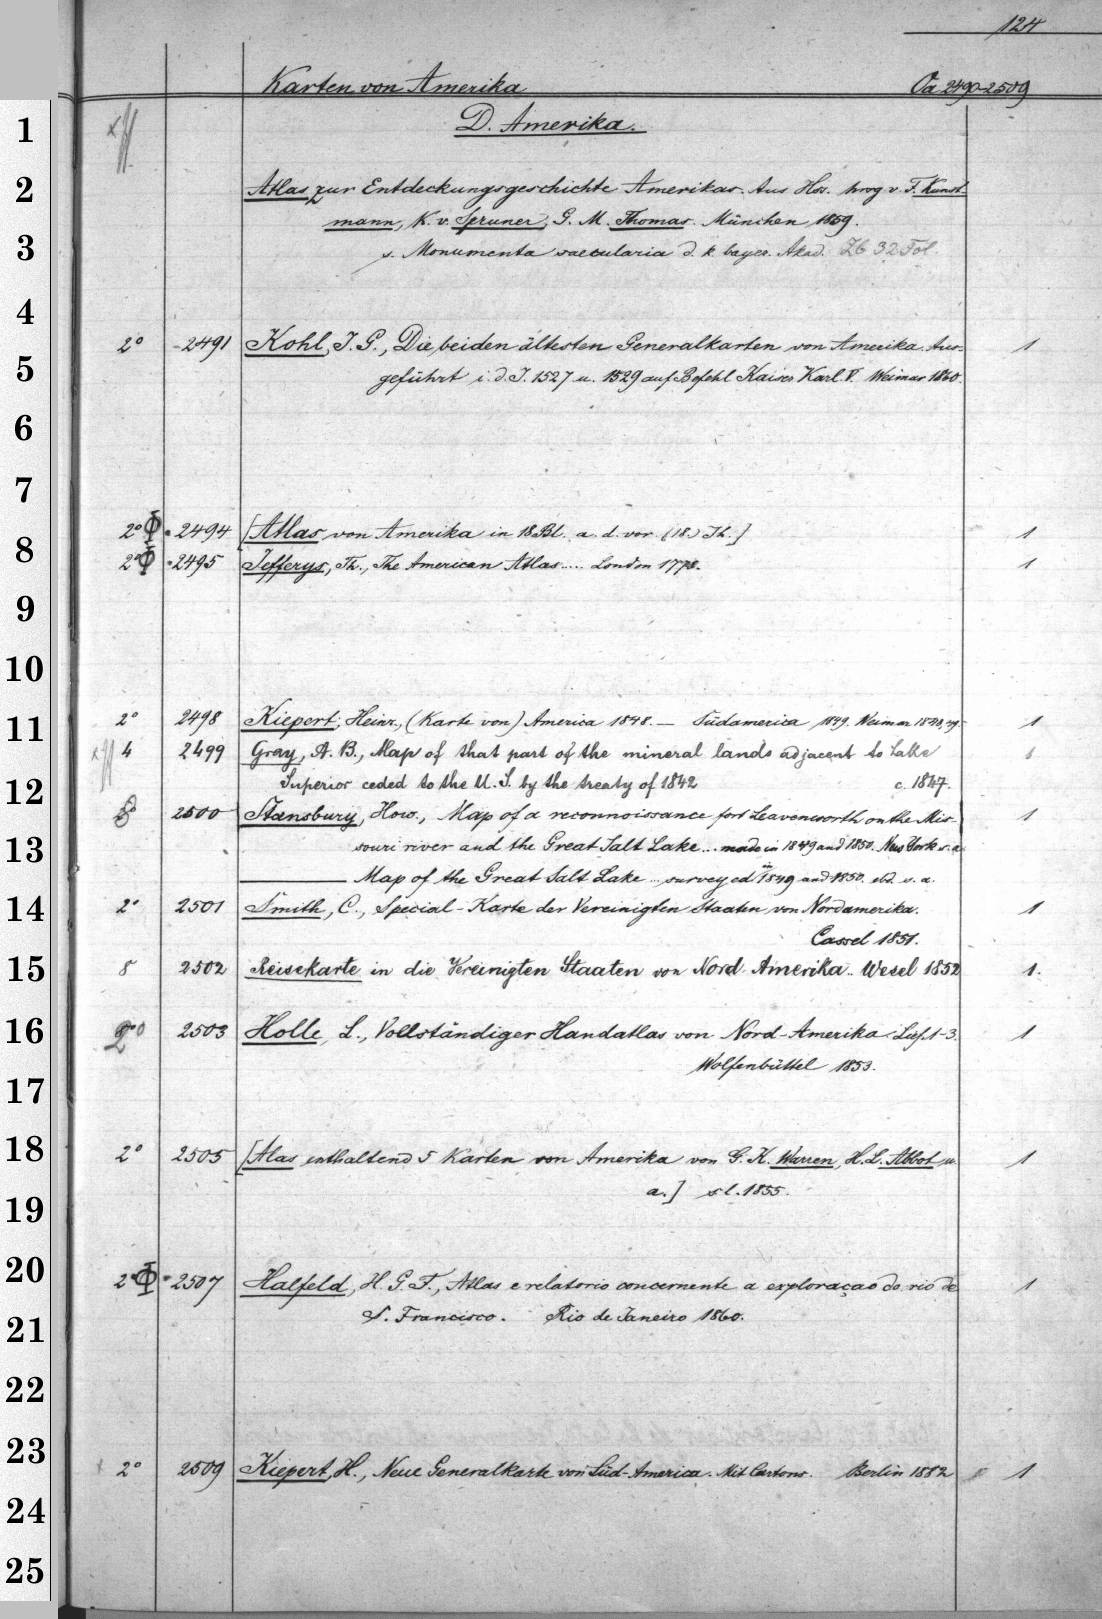 124
Karten von Amerika Oa 2490-2509
1 D. Amerika.
2 Atlas zur Entdeckungsgeschichte Amerikas. Aus Hss. hrsg v. F. Kunst-
mann, K. v. Spruner, G. M. Thomas. München 1859.
3 s. Monumenta saecularia d. k. bayer. Akad. Zb 32 Fol.
4
2° 2491 Kohl, J. G., Die beiden ältesten Generalkarten von Amerika. Aus- 1
5 geführt i. d. J. 1527 u. 1529 auf Befehl Kaiser Karl V. Weimar 1860.
6
7
2° Φ 2494 [Atlas von Amerika in 18 Bl. a. d. vor. (18.) Jh.] 1
8
2° Φ 2495 Jefferys, Th., The American Atlas..... London 1778. 1
9
10
2° 2498 Kiepert, Heinr., (Karte von) America 1848. — Südamerica 1849. Weimar 1848,49 1
11
4 2499 Gray, A. B., Map of that part of the mineral lands adjacent to Lake 1
12 Superior ceded to the U. S. by the treaty of 1842 c. 1847.
8° 2500 Stansbury, How., Map of a reconnoissance fort Leavenworth on the Mis- 1
13 souri river and the Great Salt Lake... made in 1849 and 1850. New York s. a.
——— Map of the Great Salt Lake... surveyed in 1849 and 1850. ebd. s. a.
14 2° 2501 Smith, C., Special-Karte der Vereinigten Staaten von Nordamerika. 1
Cassel 1851.
15 8 2502 Reisekarte in die Vereinigten Staaten von Nord-Amerika.. Wesel 1852 1.
16 2° 2503 Holle, L., Vollständiger Handatlas von Nord-Amerika. Lief. 1-3. 1
17 Wolfenbüttel 1853.
18 2° 2505 [Atlas enthaltend 5 Karten von Amerika von G. K. Warren, H. L. Abbot u. 1
19 a.] s l. 1855.
20 2° Φ 2507 Halfeld, H. G. F., Atlas e relatorio concernente a exploraçao do rio de 1
21 S. Francisco. Rio de Janeiro 1860.
22
23
2° 2509 Kiepert, H., Neue Generalkarte von Süd-America. Mit Cartons. Berlin 1882 1
24
25